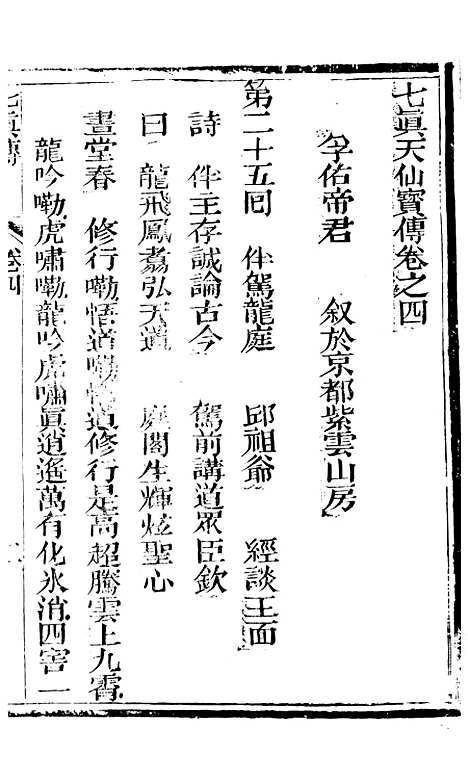 七眞天仙寶傳卷之四
孚佑帝君 叙於京都紫雲山房
第二十五囘 伴駕龍庭 邱祖爺 經談王面
詩 伴主存誠論古今 駕前講道眾臣欽
曰 龍飛鳳翥弘天道 庭閣生輝炫聖心
畫堂春 修行嘞悟道嘞悟道修行是高超騰雲上九霄
龍吟嘞虎嘯嘞龍吟虎嘯眞逍遙萬有化氷消四害一
七眞傳 卷四